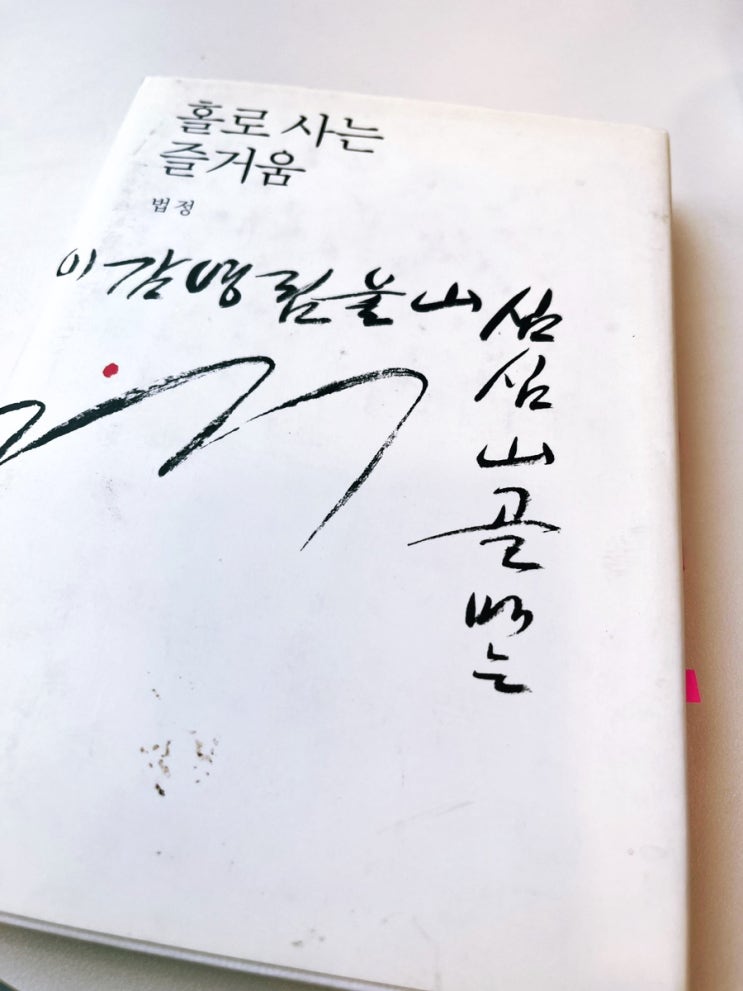 홀로 사는
즐거움
법정
심심山골에는
山울림영감이